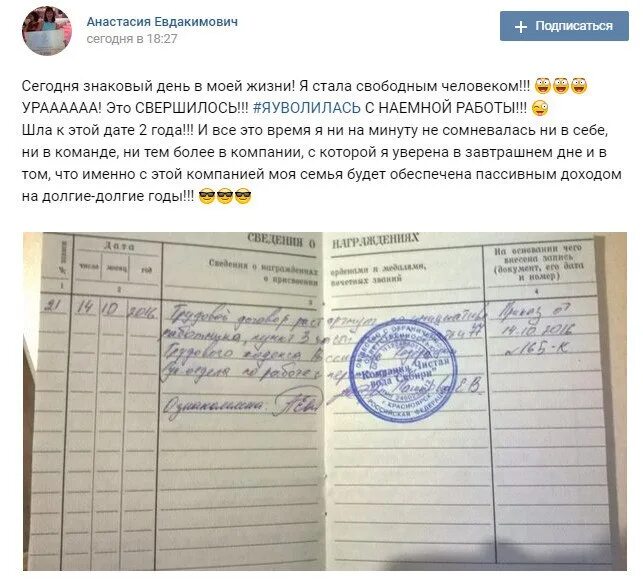 Анастасия Евдакимович
сегодня в 18:27
+ Подписаться
Сегодня знаковый день в моей жизни! Я стала свободным человеком!!!
УРАААААА! Это СВЕРШИЛОСЬ!!! #ЯУВОЛИЛАСЬ С НАЕМНОЙ РАБОТЫ!!!
Шла к этой дате 2 года!!! И все это время я ни на минуту не сомневалась ни в себе,
ни в команде, ни тем более в компании, с которой я уверена в завтрашнем дне и в
том, что именно с этой компанией моя семья будет обеспечена пассивным доходом
на долгие-долгие годы!!!
СВЕДЕНИЯ О НАГРАЖДЕНИЯХ
№ записи
Дата
число месяц год
Сведения о награждениях
о присвоении
орденами и медалями,
почетных званий
На основании чего
внесена запись
(документ, его дата
и номер)
1 2 3 4
21 14 10 2016 Трудовой договор расторгнут по инициативе Приказ от
работника, пункт 3 77 14.10.2016
Трудового кодекса № 165-К
отдела по работе с
"Компания "Чистая
вода Сибири"
г. КРАСНОЯРСК
РОССИЙСКАЯ ФЕДЕРАЦИЯ
Ознакомлена: